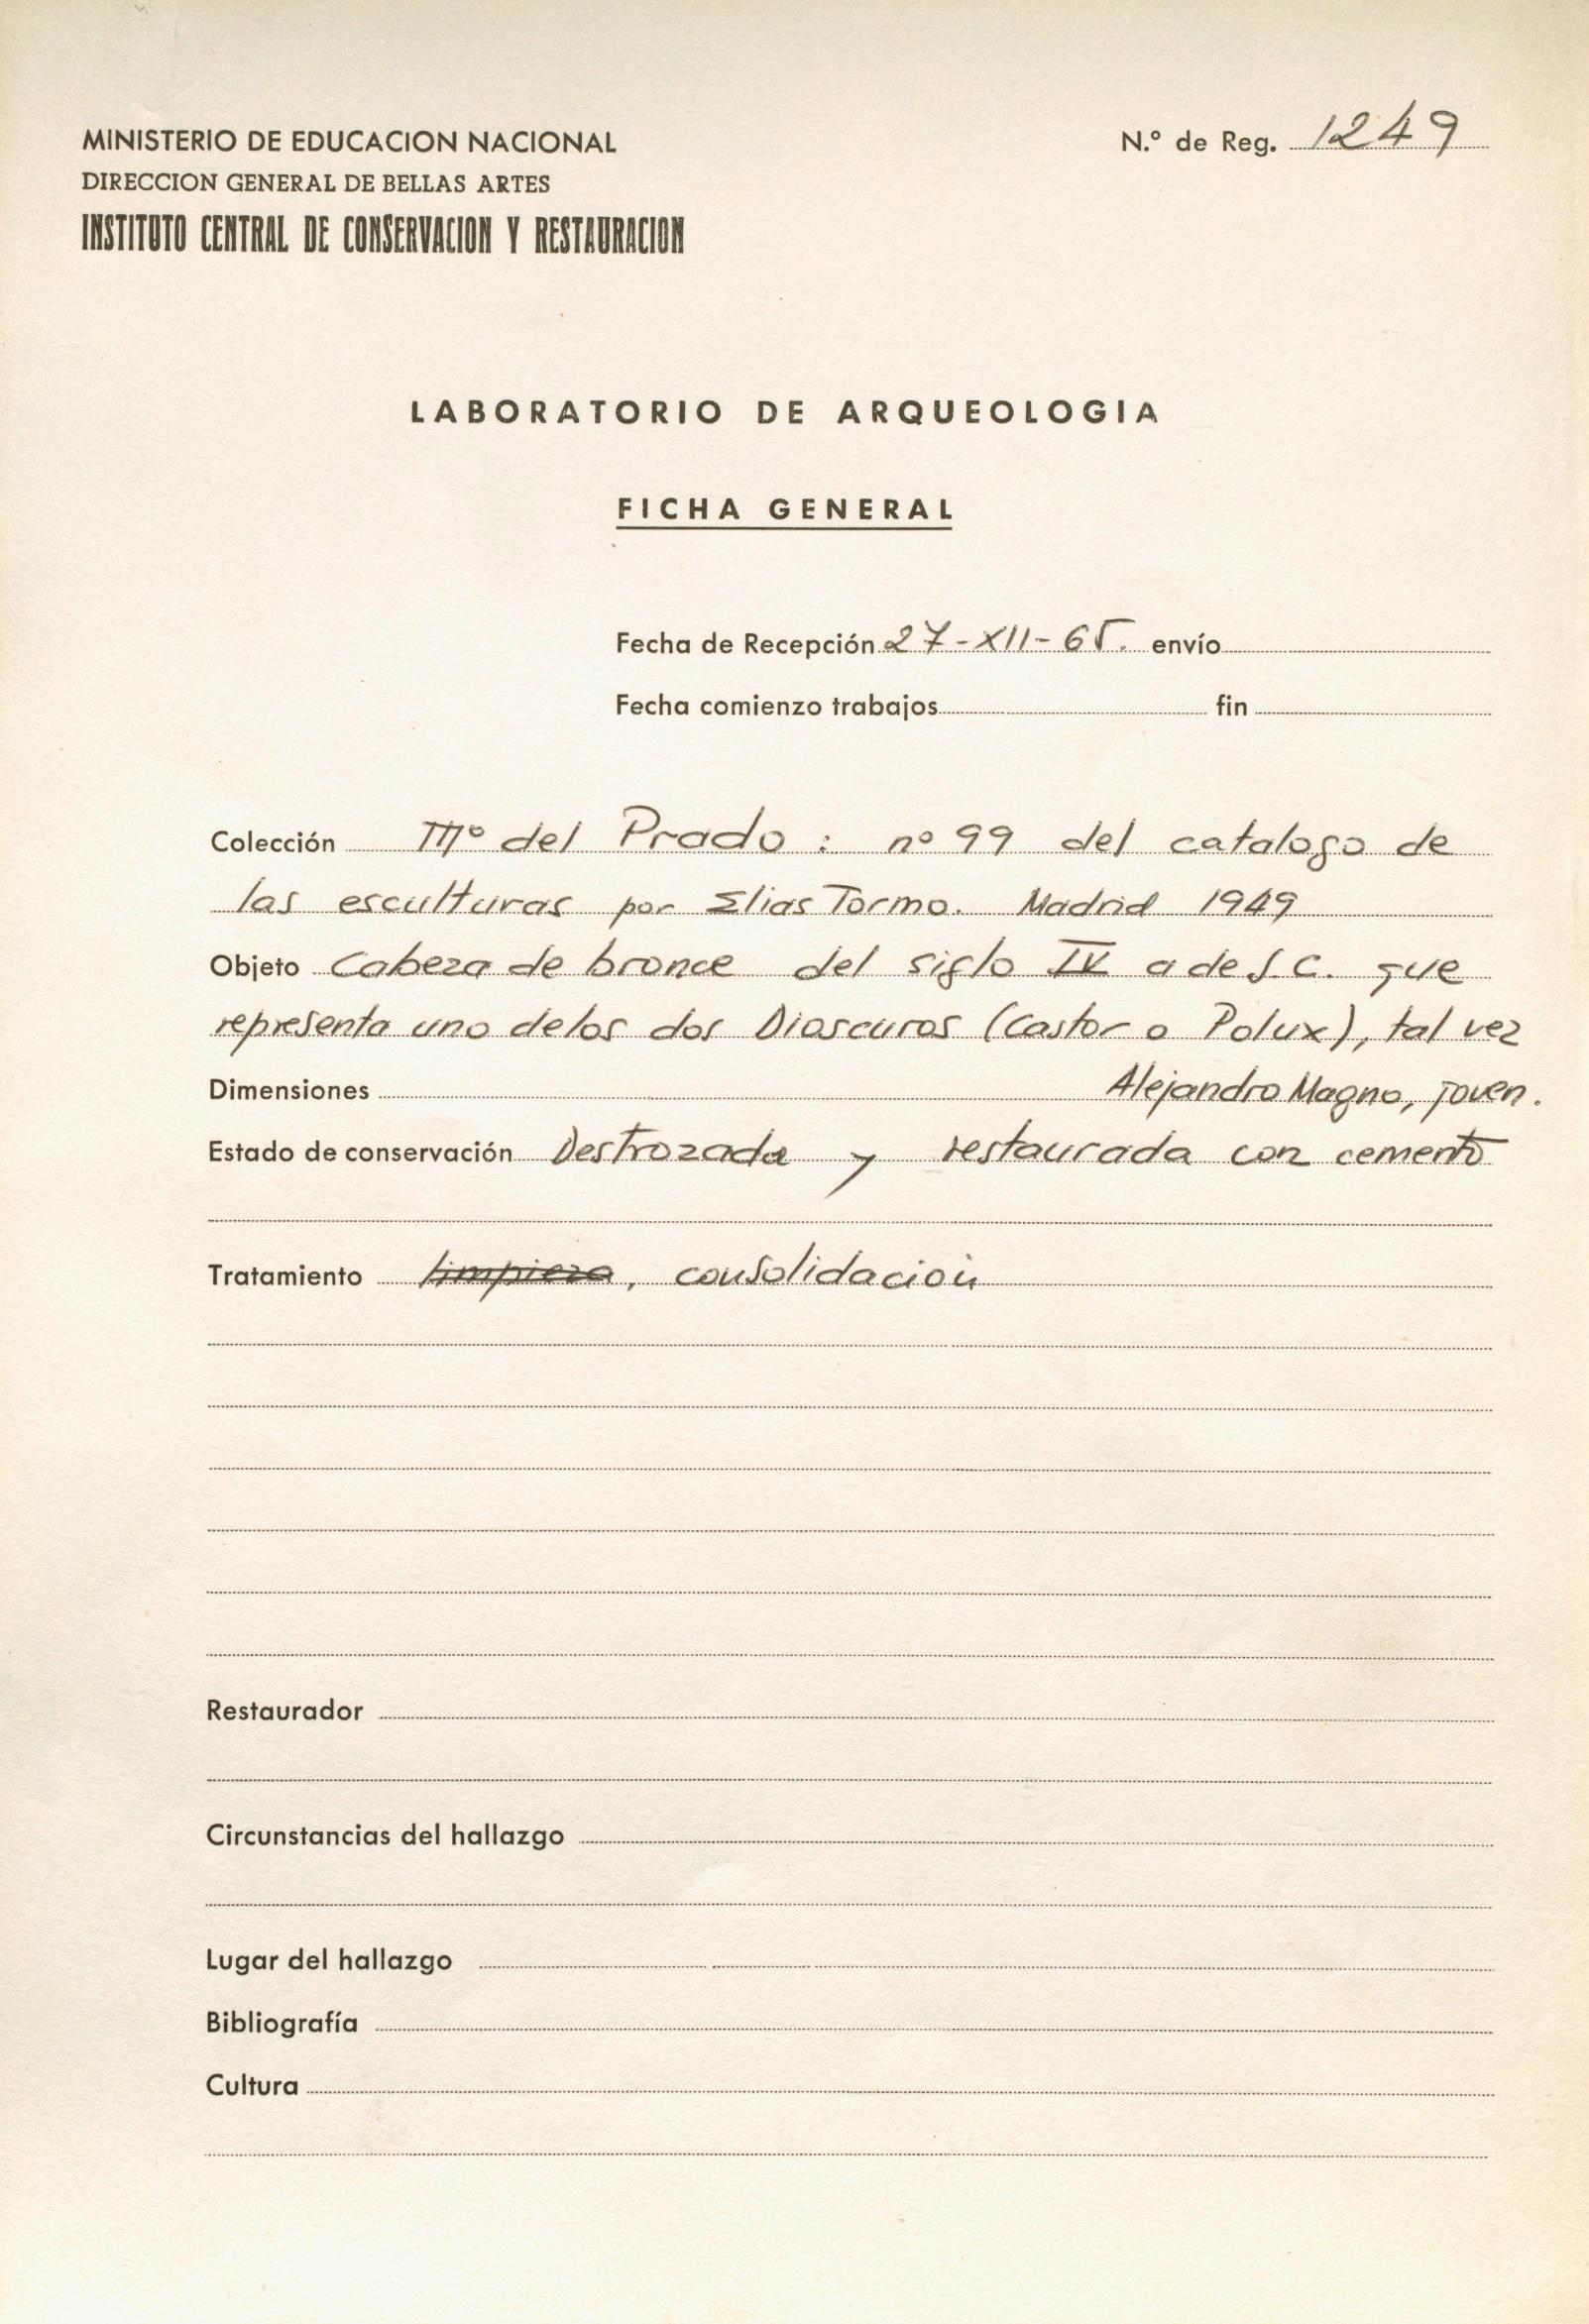 MINISTERIO DE EDUCACION NACIONAL
N.º de Reg. 1249
DIRECCION GENERAL DE BELLAS ARTES
INSTITUTO CENTRAL DE CONSERVACION Y RESTAURACION
LABORATORIO DE ARQUEOLOGIA
FICHA GENERAL
Fecha de Recepción 27-XII-65. envío
Fecha comienzo trabajos fin
Colección Mº del Prado : nº 99 del catalogo de
las esculturas por Elias Tormo. Madrid 1949
Objeto Cabeza de bronce del siglo IV a de J.C. que
representa uno de los dos Dioscuros (Castor o Polux), tal vez
Dimensiones Alejandro Magno, joven.
Estado de conservación Destrozada y restaurada con cemento
Tratamiento limpieza, consolidación
Restaurador
Circunstancias del hallazgo
Lugar del hallazgo
Bibliografía
Cultura